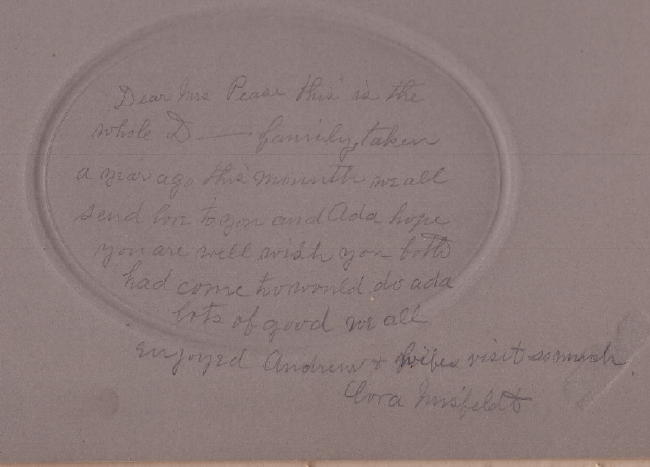 Dear Mrs Pease this is the
whole D—— family, taken
a year ago this mounth we all
send love to you and Ada hope
you are well wish you both
had come to would do ada
lots of good we all
enjoyed Andrew & wifes visit so much.
Cora